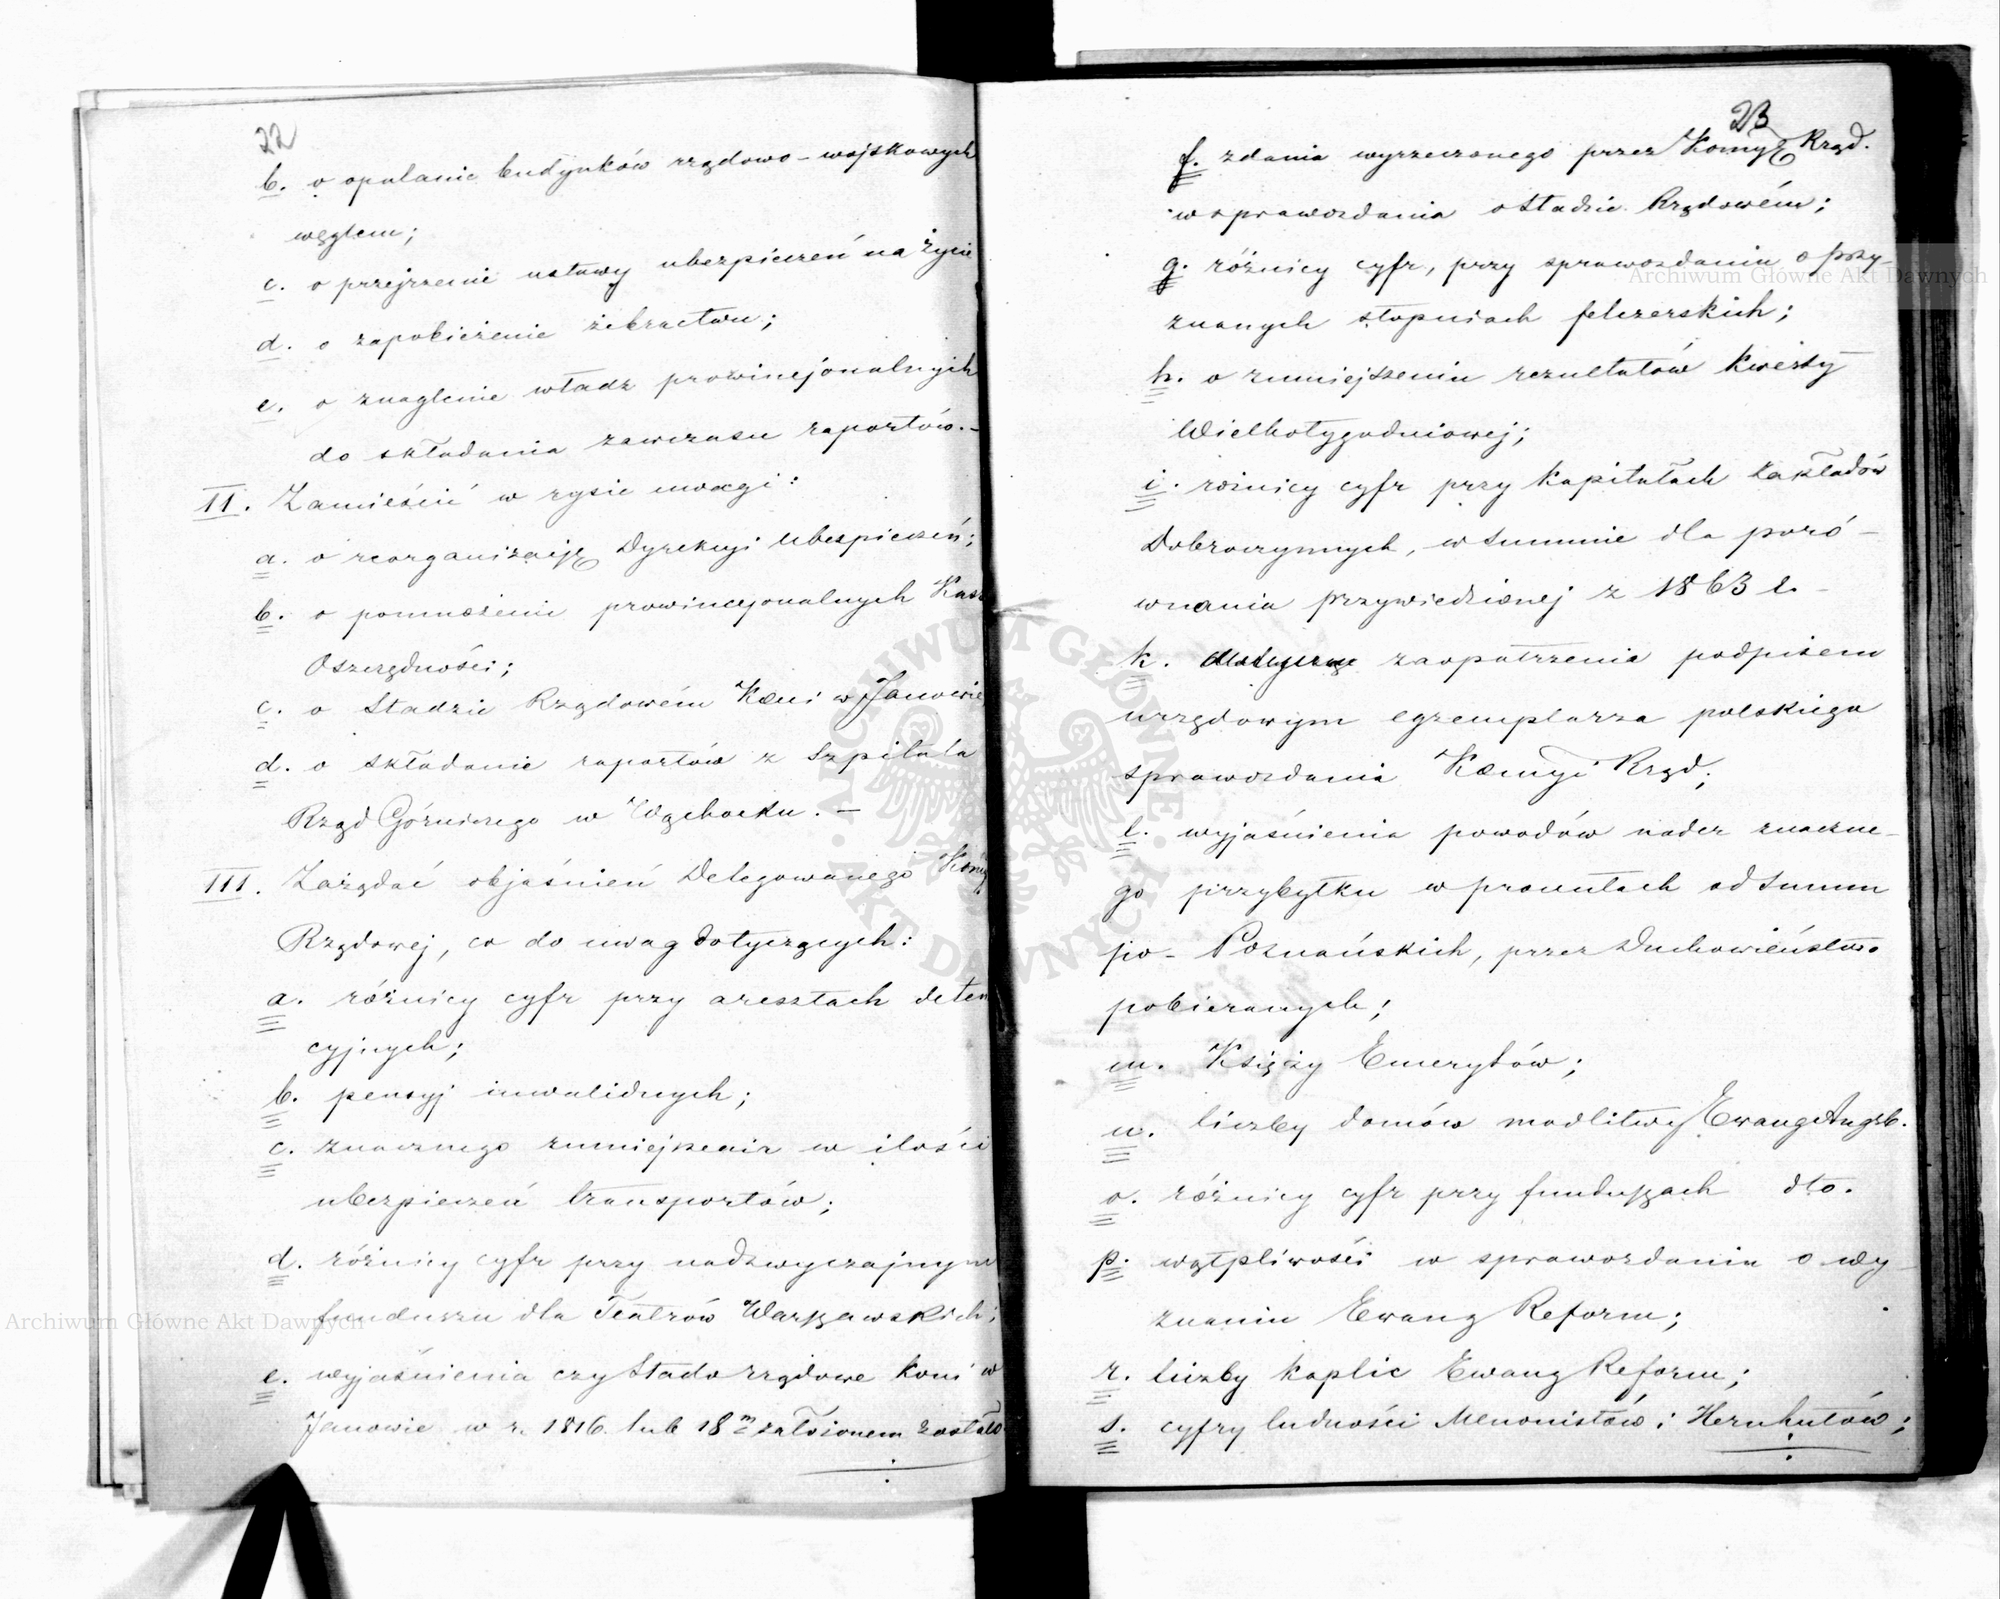 22
b. o opalanie budynków rządowo-wojskowych
węglem;
c. o przejrzenie ustawy ubezpieczeń na życie
d. o zapobieżenie żebractwu;
e. o znaglenie władz prowincjonalnych
do składania zawczasu raportów.-
II. Zamieścić w rysie uwagi:
a. o reorganizację Dyrekcyi Ubezpieczeń;
b. o pomnożenie prowincyonalnych Kass
Oszczędności;
c. o Stadzie Rządowém Koni w Janowie
d. o składanie raportów z Szpitala
Rząd Górniczego w Wąchocku.-
III. Zażądać objaśnień Delegowanego Komyi
Rządowej, co do uwag dotyczących:
a. różnicy cyfr przy aresztach deten
cyjnych;
b. pensyj inwalidnych;
c. znacznego zmniejszenia w ilości
ubezpieczeń transportów;
d. różnicy cyfr przy nadzwyczajnym
funduszu dla Teatrów Warszawskich;
e. wyjaśnienia czy Stado rządowe koni w
Janowie w r. 1816 lub 18 założonem zostało
23
f. zdania wyrzeczonego przez Komyę Rząd.
w sprawozdaniu o Stadzie Rządowém;
g. różnicy cyfr, przy sprawozdaniu o przy-
znanych stopniach felczerskich;
h. o zmniejszeniu rezultatów Kwesty
Wielkotygodniowej;
i. różnicy cyfr przy kapitałach zakładów
Dobroczynnych, w summie dla poró-
wnania przywiedzionej z 1863 r.-
k. zaopatrzenia podpisem
urzędowym egzemplarza polskiego
sprawozdania Komyi Rząd;
l. wyjaśnienia powodów nader znaczne-
go przybytku w procentach od summ
po-Poznańskich, przez Duchowieństwo
pobieranych;
m. Księży Emerytów;
n. liczby domów modlitwy Ewang Augsb.
o. różnicy cyfr przy funduszach dto.
p. wątpliwości w sprawozdaniu o wy-
znaniu Ewang Reform;
r. liczby kaplic Ewang Reform;
s. cyfry ludności Menonistów i Hernhutów;
Archiwum Główne Akt Dawnych
Archiwum Główne Akt Dawnych
ARCHIWUM GŁÓWNE · AKT DAWNYCH ·